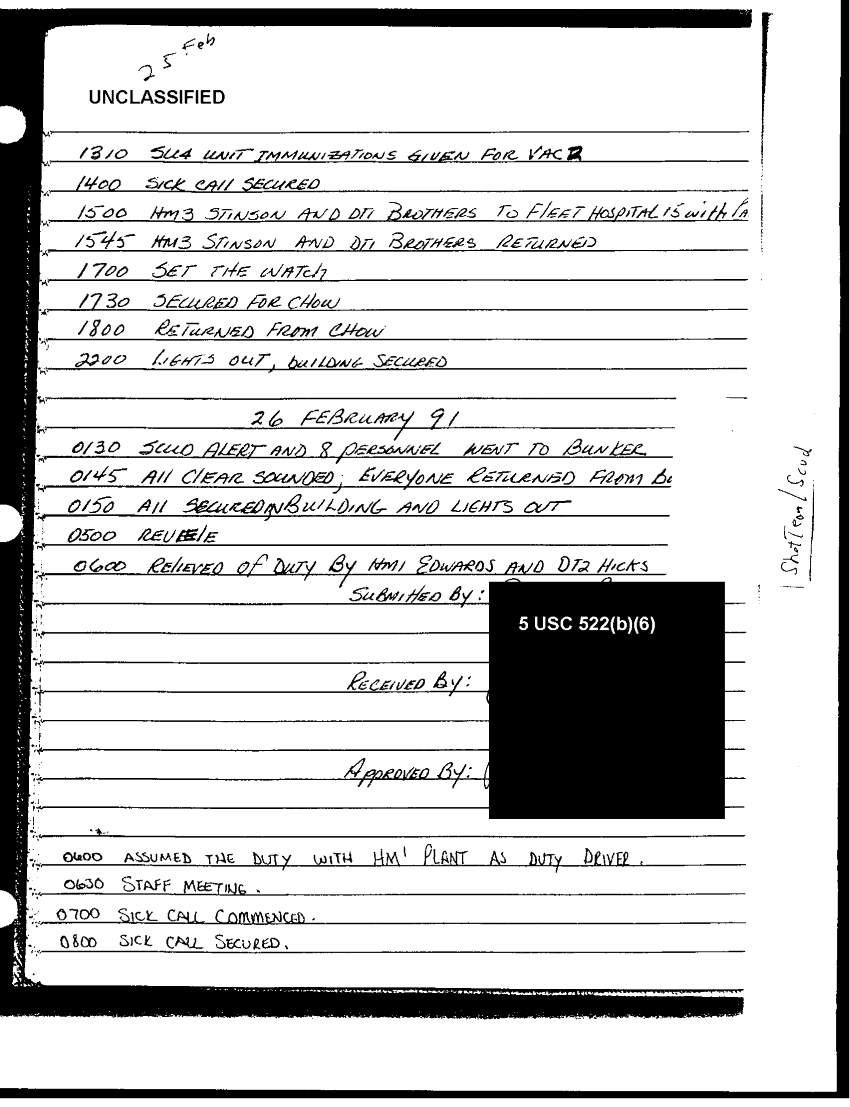 25 Feb
UNCLASSIFIED
1310 SU4 UNIT IMMUNIZATIONS GIVEN FOR VAC 2
1400 SICK CALL SECURED
1500 HM3 STINSON AND DT1 BROTHERS TO FLEET HOSPITAL 15 with
1545 HM3 STINSON AND DT1 BROTHERS RETURNED
1700 SET THE WATCH
1730 SECURED FOR CHOW
1800 RETURNED FROM CHOW
2200 LIGHTS OUT, BUILDING SECURED
26 FEBRUARY 91
0130 SCUD ALERT AND 8 PERSONNEL WENT TO BUNKER
0145 All CLEAR SOUNDED, EVERYONE RETURNED FROM
0150 All SECURED IN BUILDING AND LIGHTS OUT
0500 REVEILLE
0600 RELIEVED OF DUTY BY HM1 EDWARDS AND DT2 HICKS
SUBMITTED BY:
5 USC 522(b)(6)
RECEIVED BY:
APPROVED BY:
0600 ASSUMED THE DUTY WITH HM1 PLANT AS DUTY DRIVER.
0630 STAFF MEETING.
0700 SICK CALL COMMENCED.
0800 SICK CALL SECURED.
Shot Team / Scud